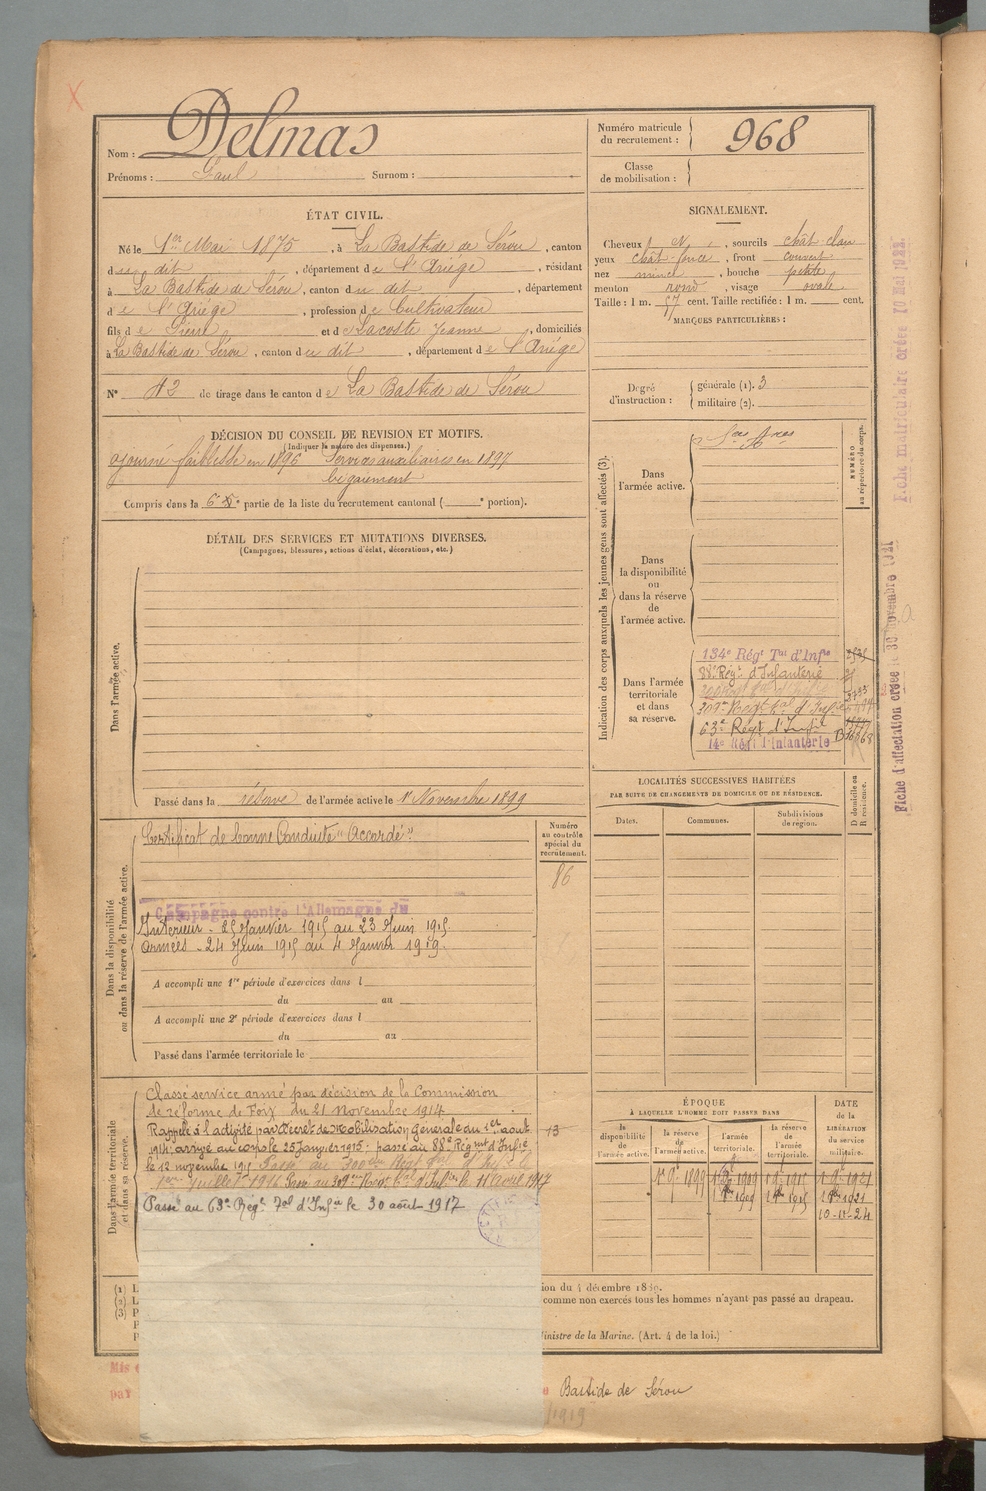 Nom : Delmas
Prénoms : Paul Surnom :
Numéro matricule
du recrutement : 968
Classe
de mobilisation :
ÉTAT CIVIL.
Né le 1er Mai 1875, à La Bastide de Sérou, canton
du dit, département de l'Ariége, résidant
à La Bastide de Sérou, canton du dit, département
de l'Ariége, profession de Cultivateur
fils de Pierre et de Lacoste Jeanne, domiciliés
à La Bastide de Sérou, canton du dit, département de l'Ariége
N° 42 de tirage dans le canton de La Bastide de Sérou
SIGNALEMENT.
Cheveux N, sourcils chât-clair
yeux chât-foncé, front couvert
nez mince, bouche petite
menton rond, visage ovale
Taille : 1 m. 57 cent. Taille rectifiée : 1 m. cent.
MARQUES PARTICULIÈRES :
Degré
d'instruction :
générale (1). 3
militaire (2).
DÉCISION DU CONSEIL DE REVISION ET MOTIFS.
(Indiquer la nature des dispenses.)
ajourné faiblesse en 1896 Services auxiliaires en 1897
bégaiement
Compris dans la 6e partie de la liste du recrutement cantonal ( e portion).
DÉTAIL DES SERVICES ET MUTATIONS DIVERSES.
(Campagnes, blessures, actions d'éclat, décorations, etc.)
Dans l'armée active.
Passé dans la réserve de l'armée active le 1er Novembre 1899
Indication des corps auxquels les jeunes gens sont affectés (3).
NUMÉRO
au répertoire du corps.
Dans
l'armée active.
Dans
la disponibilité
ou
dans la réserve
de
l'armée active.
Dans l'armée
territoriale
et dans
sa réserve.
134e Régt Tal d'Infie
88e Régt d'Infanterie
309e Régt Tal d'Infie
63e Régt d'Infie
14e Régt d'Infanterie
Fiche matriculaire créée 10 Mai 1922
Fiche d'affectation créée le 30 novembre 1921
LOCALITÉS SUCCESSIVES HABITÉES
PAR SUITE DE CHANGEMENTS DE DOMICILE OU DE RÉSIDENCE.
Dates.
Communes.
Subdivisions
de région.
D domicile ou
R résidence.
Dans la disponibilité
ou dans la réserve de l'armée active.
Numéro
au contrôle
spécial du
recrutement.
86
Certificat de bonne Conduite "Accordé".
Campagne contre l'Allemagne du
Intérieur - 25 Janvier 1915 au 23 Juin 1915.
Armées - 24 Juin 1915 au 4 Janvier 1919.
A accompli une 1re période d'exercices dans l
du au
A accompli une 2e période d'exercices dans l
du au
Passé dans l'armée territoriale le
Dans l'armée territoriale
et dans sa réserve.
Classé service armé par décision de la Commission
de réforme de Foix du 21 Novembre 1914
Rappelé à l'activité par décret de Mobilisation générale du 1er aout
1914, arrivé au corps le 25 Janvier 1915. passé au 88e Régmt d'Infie
le 12 novembre 1915 Passé au 300e Régt Tal d'Infie le
1er Juillet 1916 Passé au 309e Régt Tal d'Infie le 11 avril 1917
Passé au 63e Régt Tal d'Infie le 30 août 1917
13
ÉPOQUE
À LAQUELLE L'HOMME DOIT PASSER DANS
la
disponibilité
de
l'armée active.
la
réserve
de
l'armée active.
l'armée
territoriale.
la
réserve
de
l'armée
territoriale.
DATE
de la
LIBÉRATION
du service
militaire.
1er 9bre 1899
1er 8bre 1909
1er 8bre 1915
1er 8bre 1921
10-11-24
(1) L
(2) L
(3) P
ion du 4 décembre 1889.
comme non exercés tous les hommes n'ayant pas passé au drapeau.
Ministre de la Marine. (Art. 4 de la loi.)
Mis
par
Bastide de Sérou
/1919